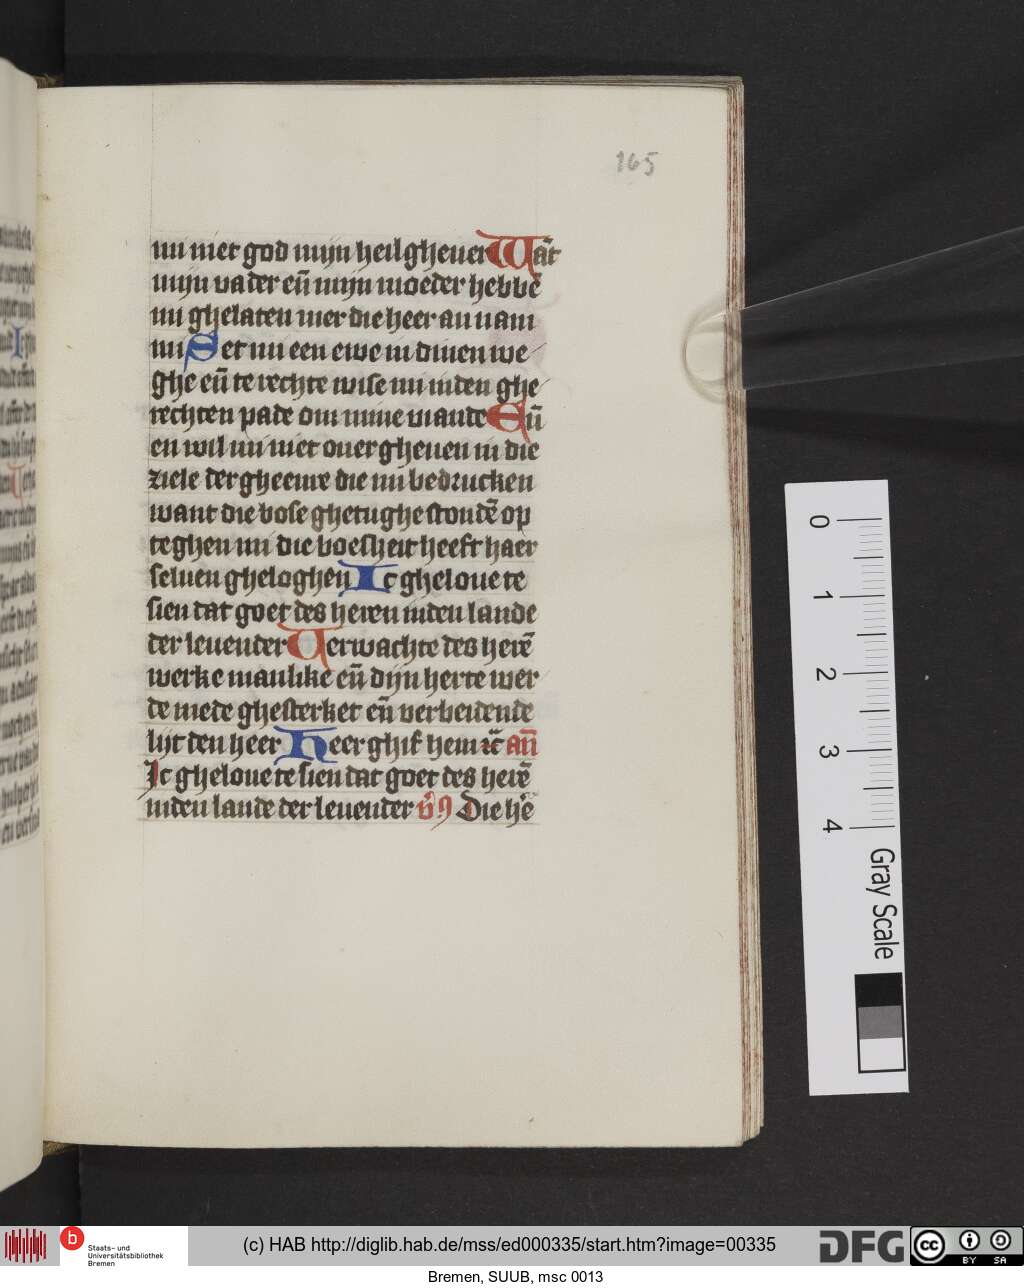 165
mi niet god mijn heilgheuer Wāt
mijn vader eñ mijn moeder hebbē
mi ghelaten mer die heer an nam
mi Set mi een ewe in dinen we
ghe eñ te rechte wise mi inden ghe
rechten pade om mine viande Eñ
en wil mi niet ouergheuen in die
ziele der gheenre die mi bedrucken
want die bose ghetughe stondē op
teghen mi die boesheit heeft haer
seluen gheloghen Ic gheloue te
sien dat goet des heren inden lande
der leuender Verwachte des herē
werke manlike eñ dijn herte wer
de mede ghesterket eñ verbeidende
lijt den heer Heer ghif hem rc̄ añ
Ic gheloue te sien dat goet des herē
inden lande der leuender v̄s Die h'e
0
1
2
3
4
Gray Scale
Staats- und
Universitätsbibliothek
Bremen
(c) HAB http://diglib.hab.de/mss/ed000335/start.htm?image=00335
DFG
cc
BY SA
Bremen, SUUB, msc 0013